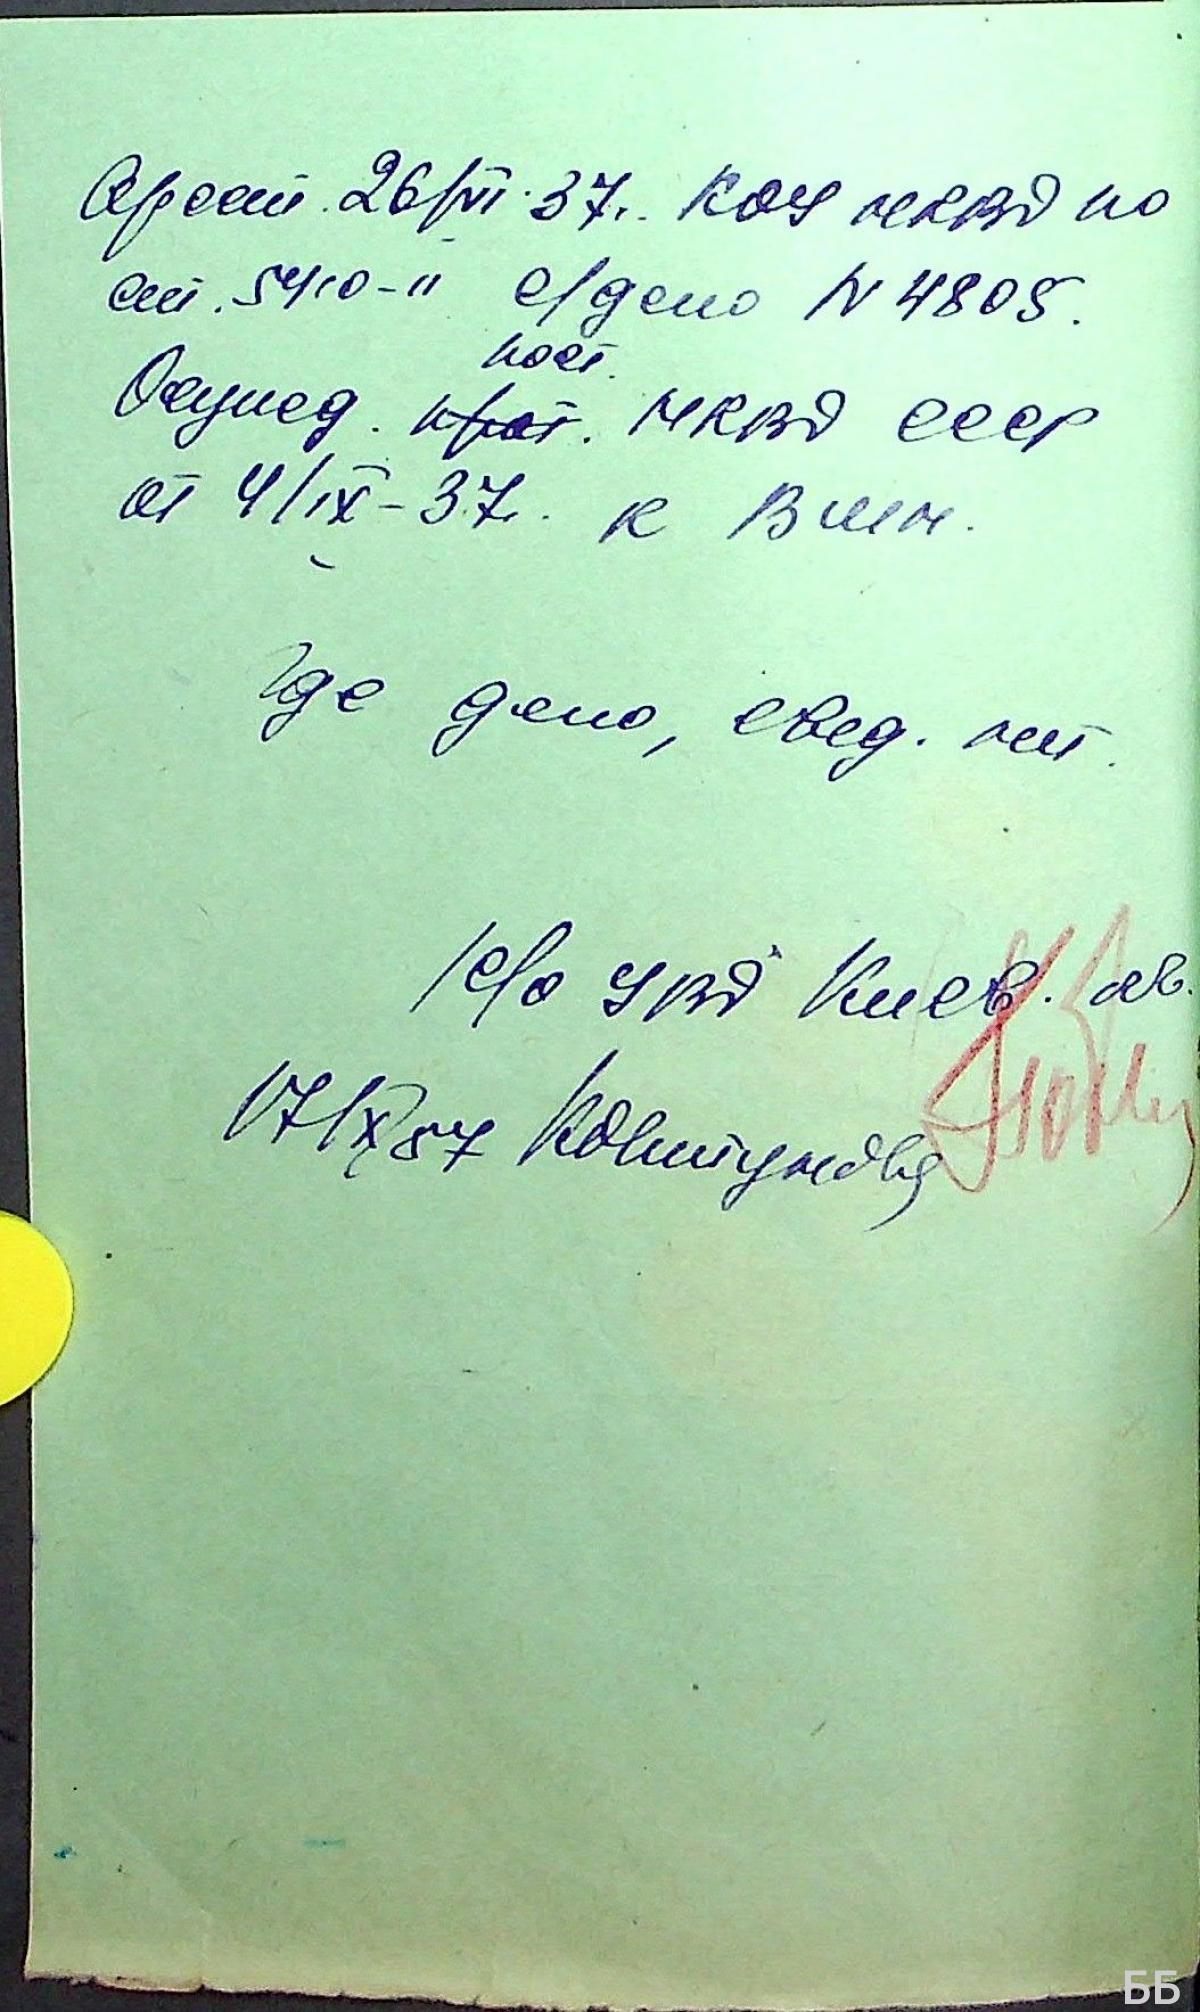 Арест. 26/VII-37г. КОУ НКВД по
ст. 5410-11 с/дело N 4805.
пост.
Осужд. прот. НКВД СССР
от 4/IX-37г. к ВМН.
Где дело, свед. нет.
УВД Киев. обл.
17/X 57 Ковтунова
ББ